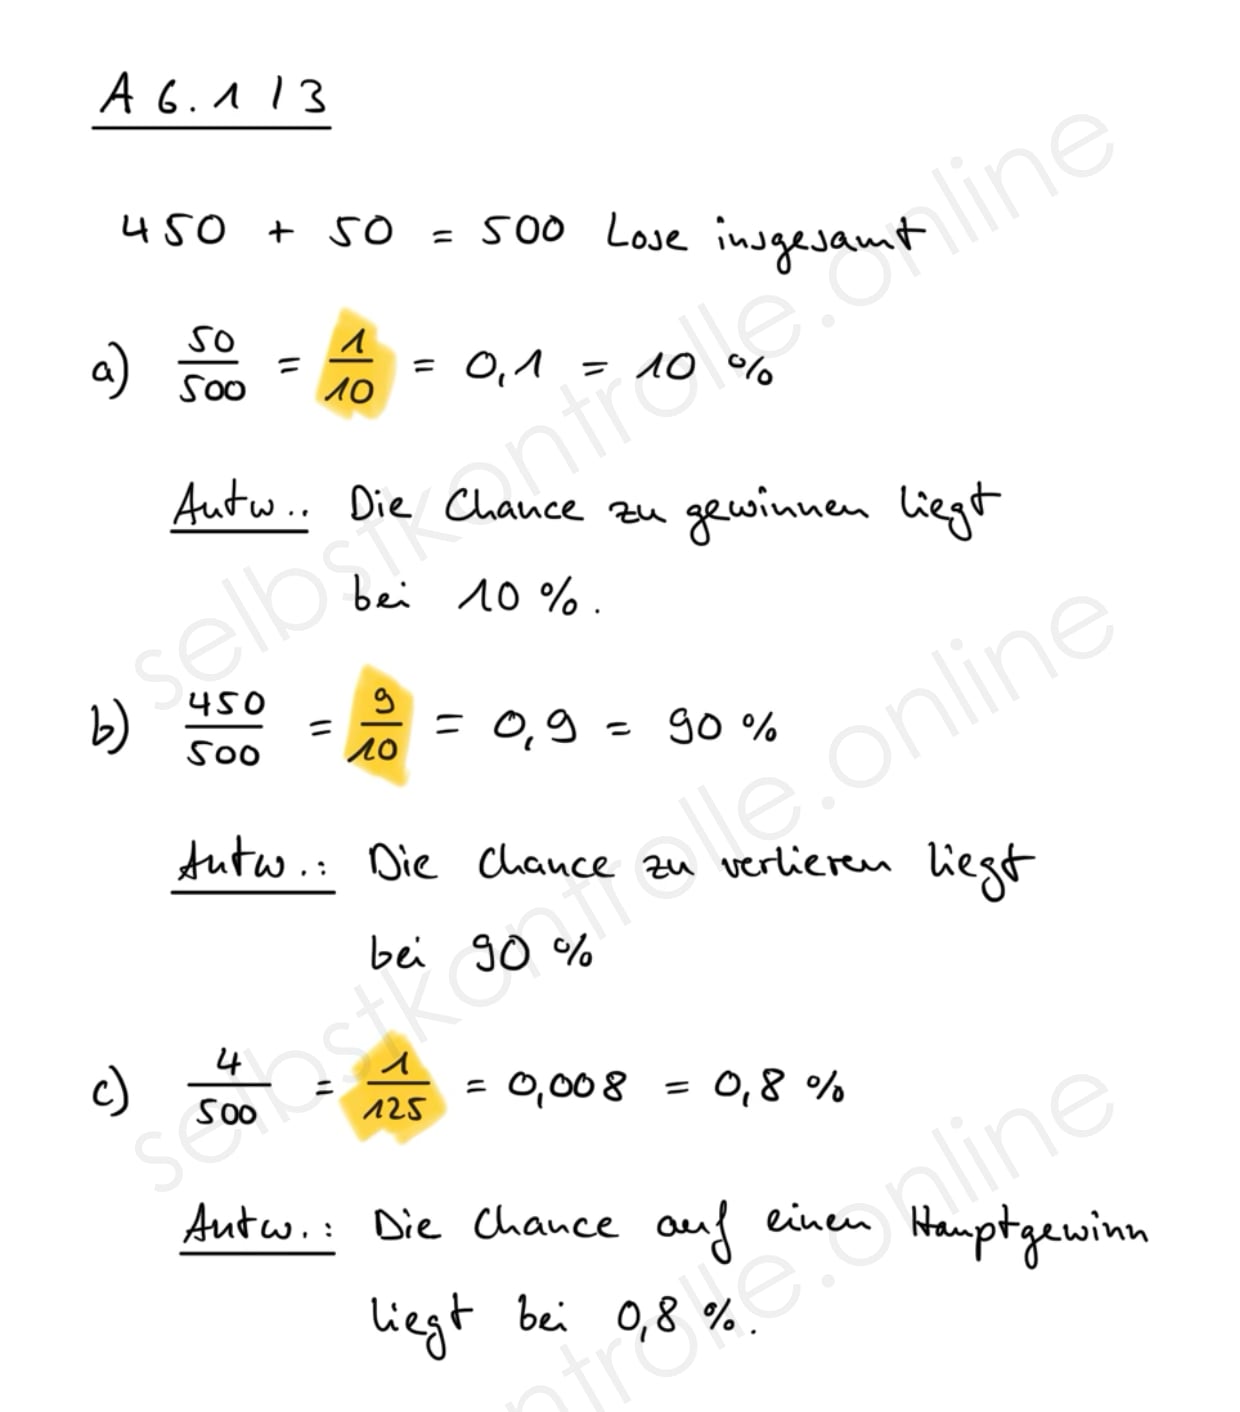 A 6.1 / 3
450 + 50 = 500 Lose insgesamt
a) 50/500 = 1/10 = 0,1 = 10 %
Antw.: Die Chance zu gewinnen liegt
bei 10 %.
b) 450/500 = 9/10 = 0,9 = 90 %
Antw.: Die Chance zu verlieren liegt
bei 90 %
c) 4/500 = 1/125 = 0,008 = 0,8 %
Antw.: Die Chance auf einen Hauptgewinn
liegt bei 0,8 %.
selbstkontrolle.online
selbstkontrolle.online
selbstkontrolle.online